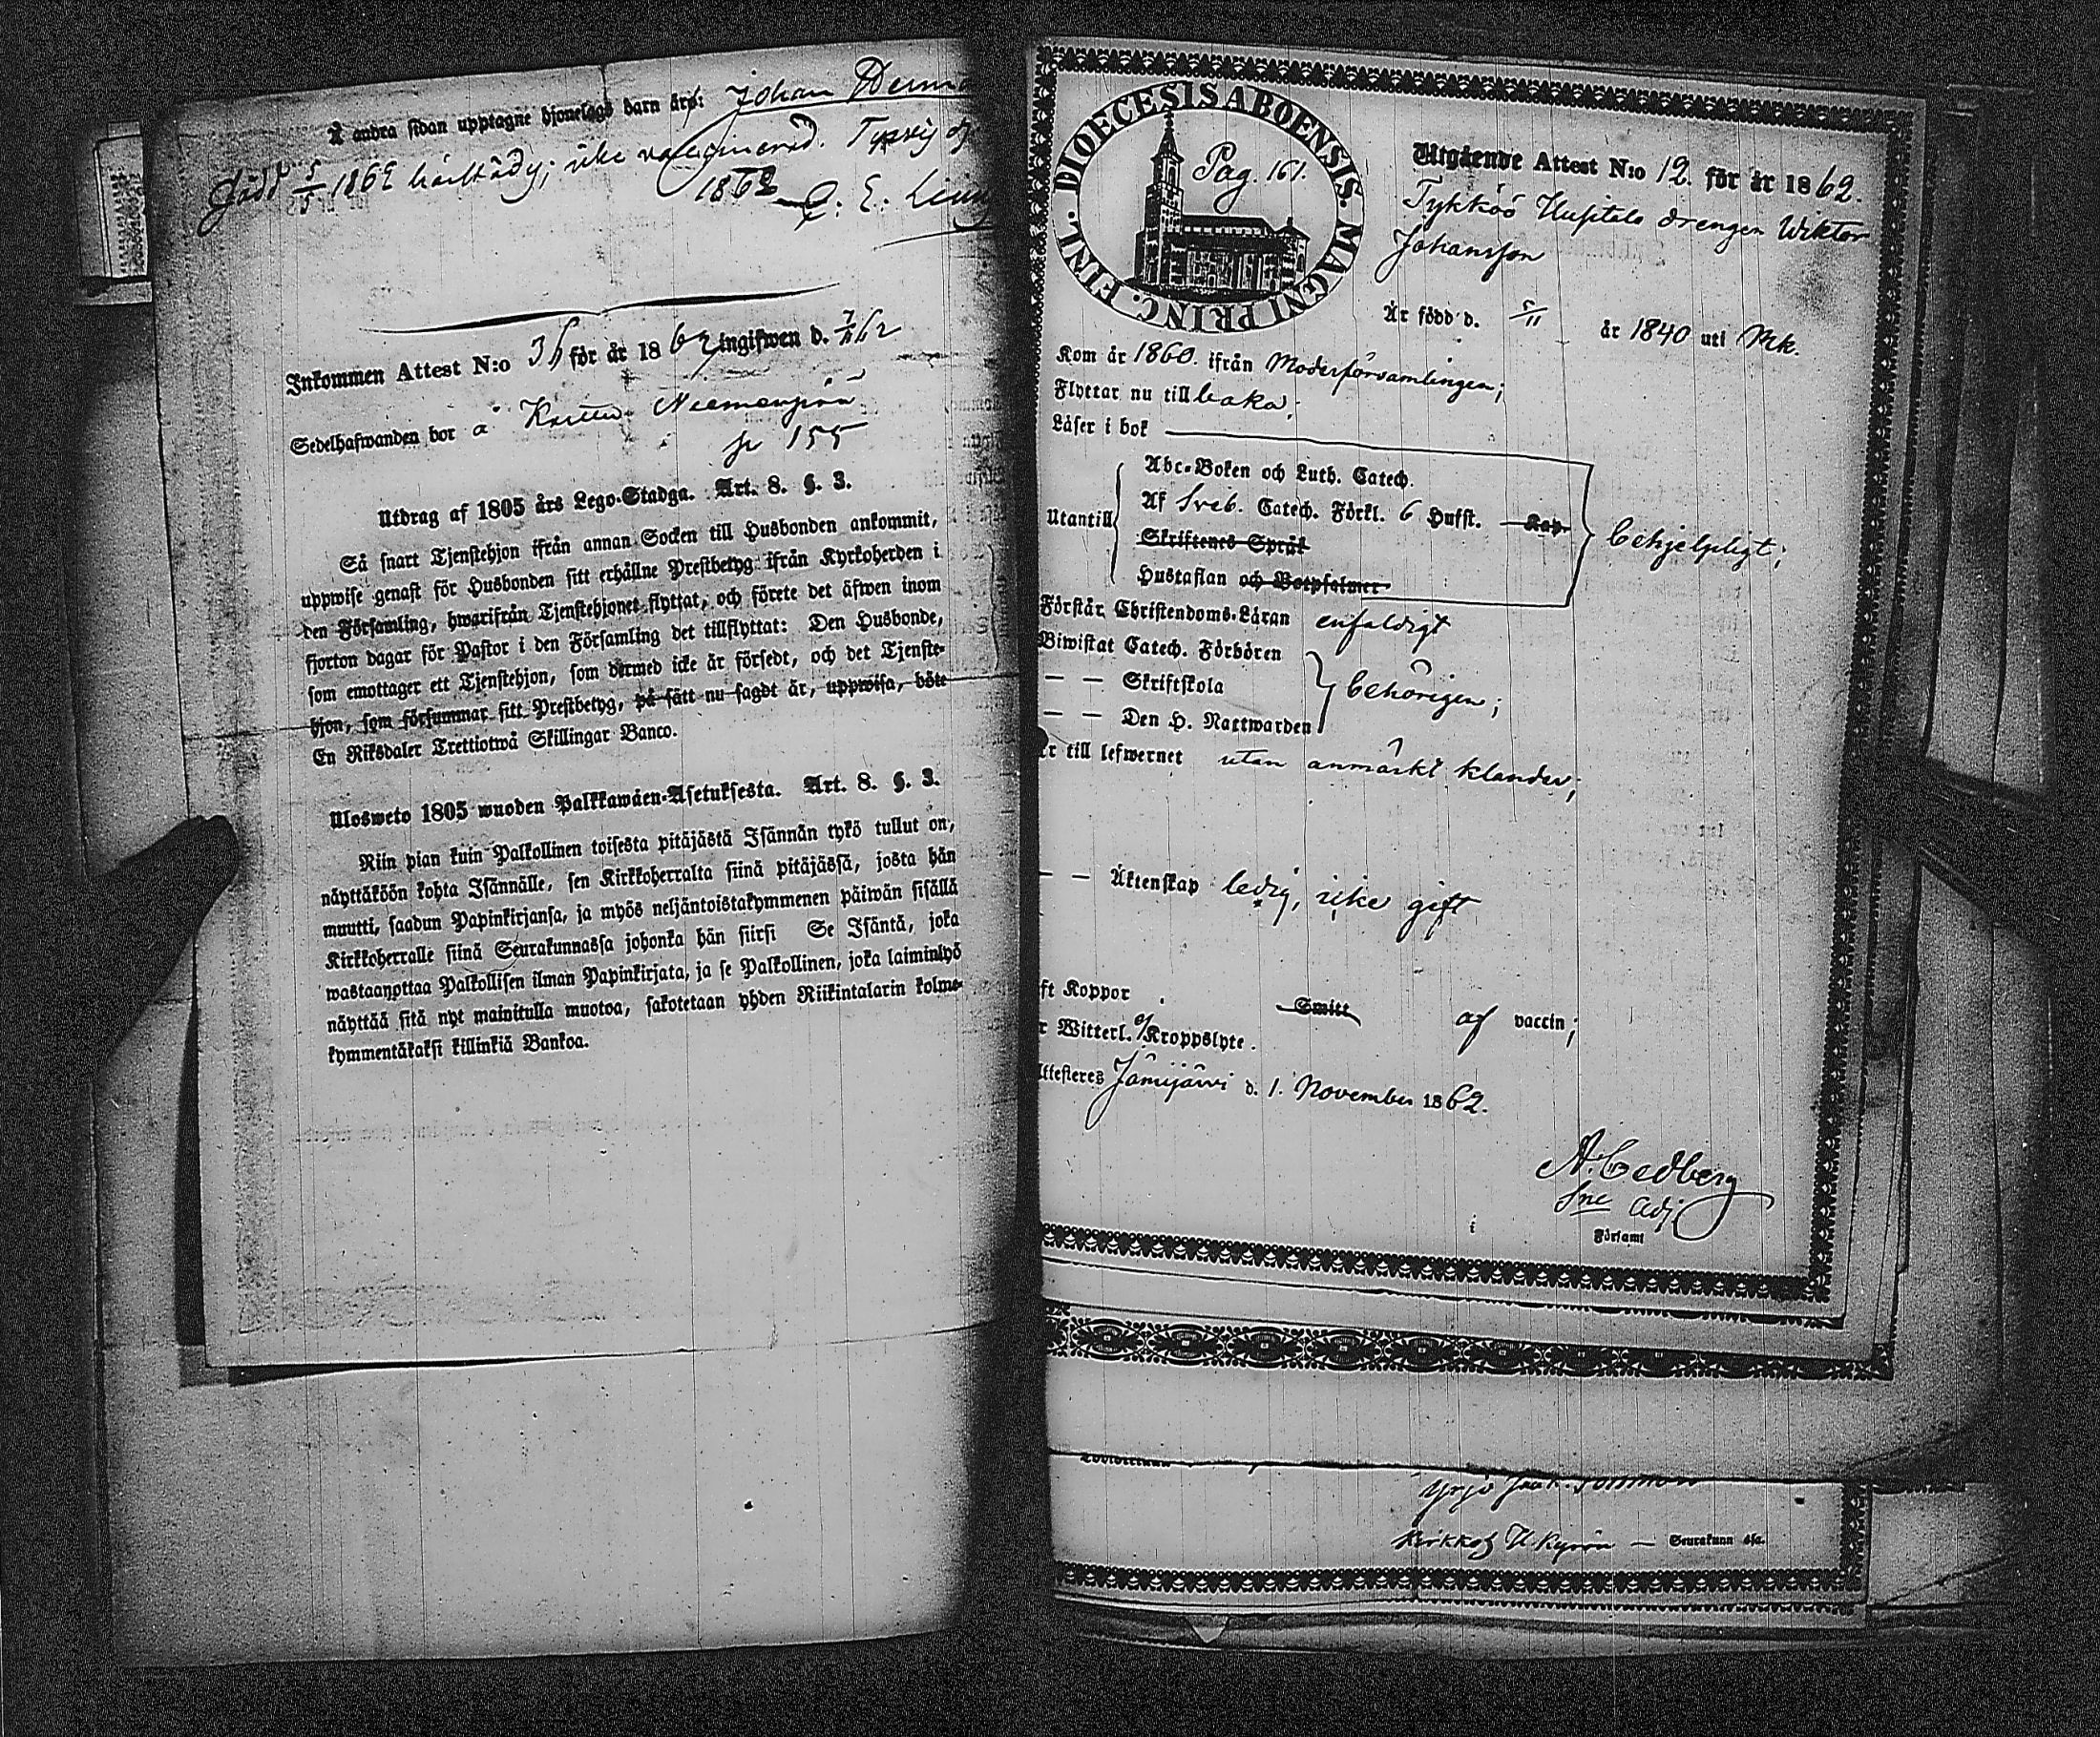 Å andra sidan upptagne hjonelags barn äro: Johan Herm
född 5/5 1862 härstädes; icke vaccinerad.
1862 C. E.
Inkommen Attest N:o 36 för år 1862 ingifwen d. 7/11 62
Sedelhafwanden bor å Niemenpää
p 155
Utdrag af 1805 års Lego-Stadga. Art. 8. §. 3.
Så snart Tjenstehjon ifrån annan Socken till Husbonden ankommit,
uppwise genast för Husbonden sitt erhållne Prestbetyg ifrån Kyrkoherden i
den Församling, hwarifrån Tjenstehjonet flyttat, och förete det äfwen inom
fjorton dagar för Pastor i den Församling det tillflyttat: Den Husbonde,
som emottager ett Tjenstehjon, som dermed icke är försedt, och det Tjenste-
hjon, som försummar sitt Prestbetyg, på sätt nu sagdt är, uppwisa, böte
En Riksdaler Trettiotwå Skillingar Banco.
Ulosweto 1805 wuoden Palkkawäen-Asetuksesta. Art. 8. §. 3.
Niin pian kuin Palkollinen toisesta pitäjästä Isännän tykö tullut on,
näyttäköön kohta Isännälle, sen Kirkkoherralta siinä pitäjässä, josta hän
muutti, saadun Papinkirjansa, ja myös neljäntoistakymmenen päiwän sisällä
Kirkkoherralle siinä Seurakunnassa johonka hän siirsi Se Isäntä, joka
wastaanottaa Palkollisen ilman Papinkirjata, ja se Palkollinen, joka laiminlyö
näyttää sitä nyt mainitulla muotoa, sakotetaan yhden Riikintalarin kolme-
kymmentäkaksi killinkiä Bankoa.
DIOECESIS ABOENSIS. MAGNI PRINC. FINL.
Pag. 161.
Utgående Attest N:o 12. för år 1862.
Tykköö Husitals drengen Wiktor
Johansson
Är född d. 5/11 år 1840 uti Mk.
Kom år 1860. ifrån Moderförsamlingen;
Flyttar nu tillbaka;
Läser i bok
Utantill
Abc-Boken och Luth. Catech.
Af Sveb. Catech. Förkl. 6 Hufst. Kap.
Skriftenes Språk
Hustaflan och Botpsalmer
behjelpligt;
Förstår Christendoms-Läran enfaldigt
Biwistat Catech. Förhören
— — Skriftskola
— — Den H. Nattwarden
behörigen;
Är till lefwernet utan anmärkt klander;
— — Äktenskap ledig, icke gift
ft Koppor Smitt af vaccin;
r Witterl. o/ Kroppslyte.
Attesteres Jämijärvi d. 1. November 1862.
A. Cedberg
Sne Adj
i Församl
Yrjö Jaak.
Kirkkoh H.kyrön — Seurakunnasa.